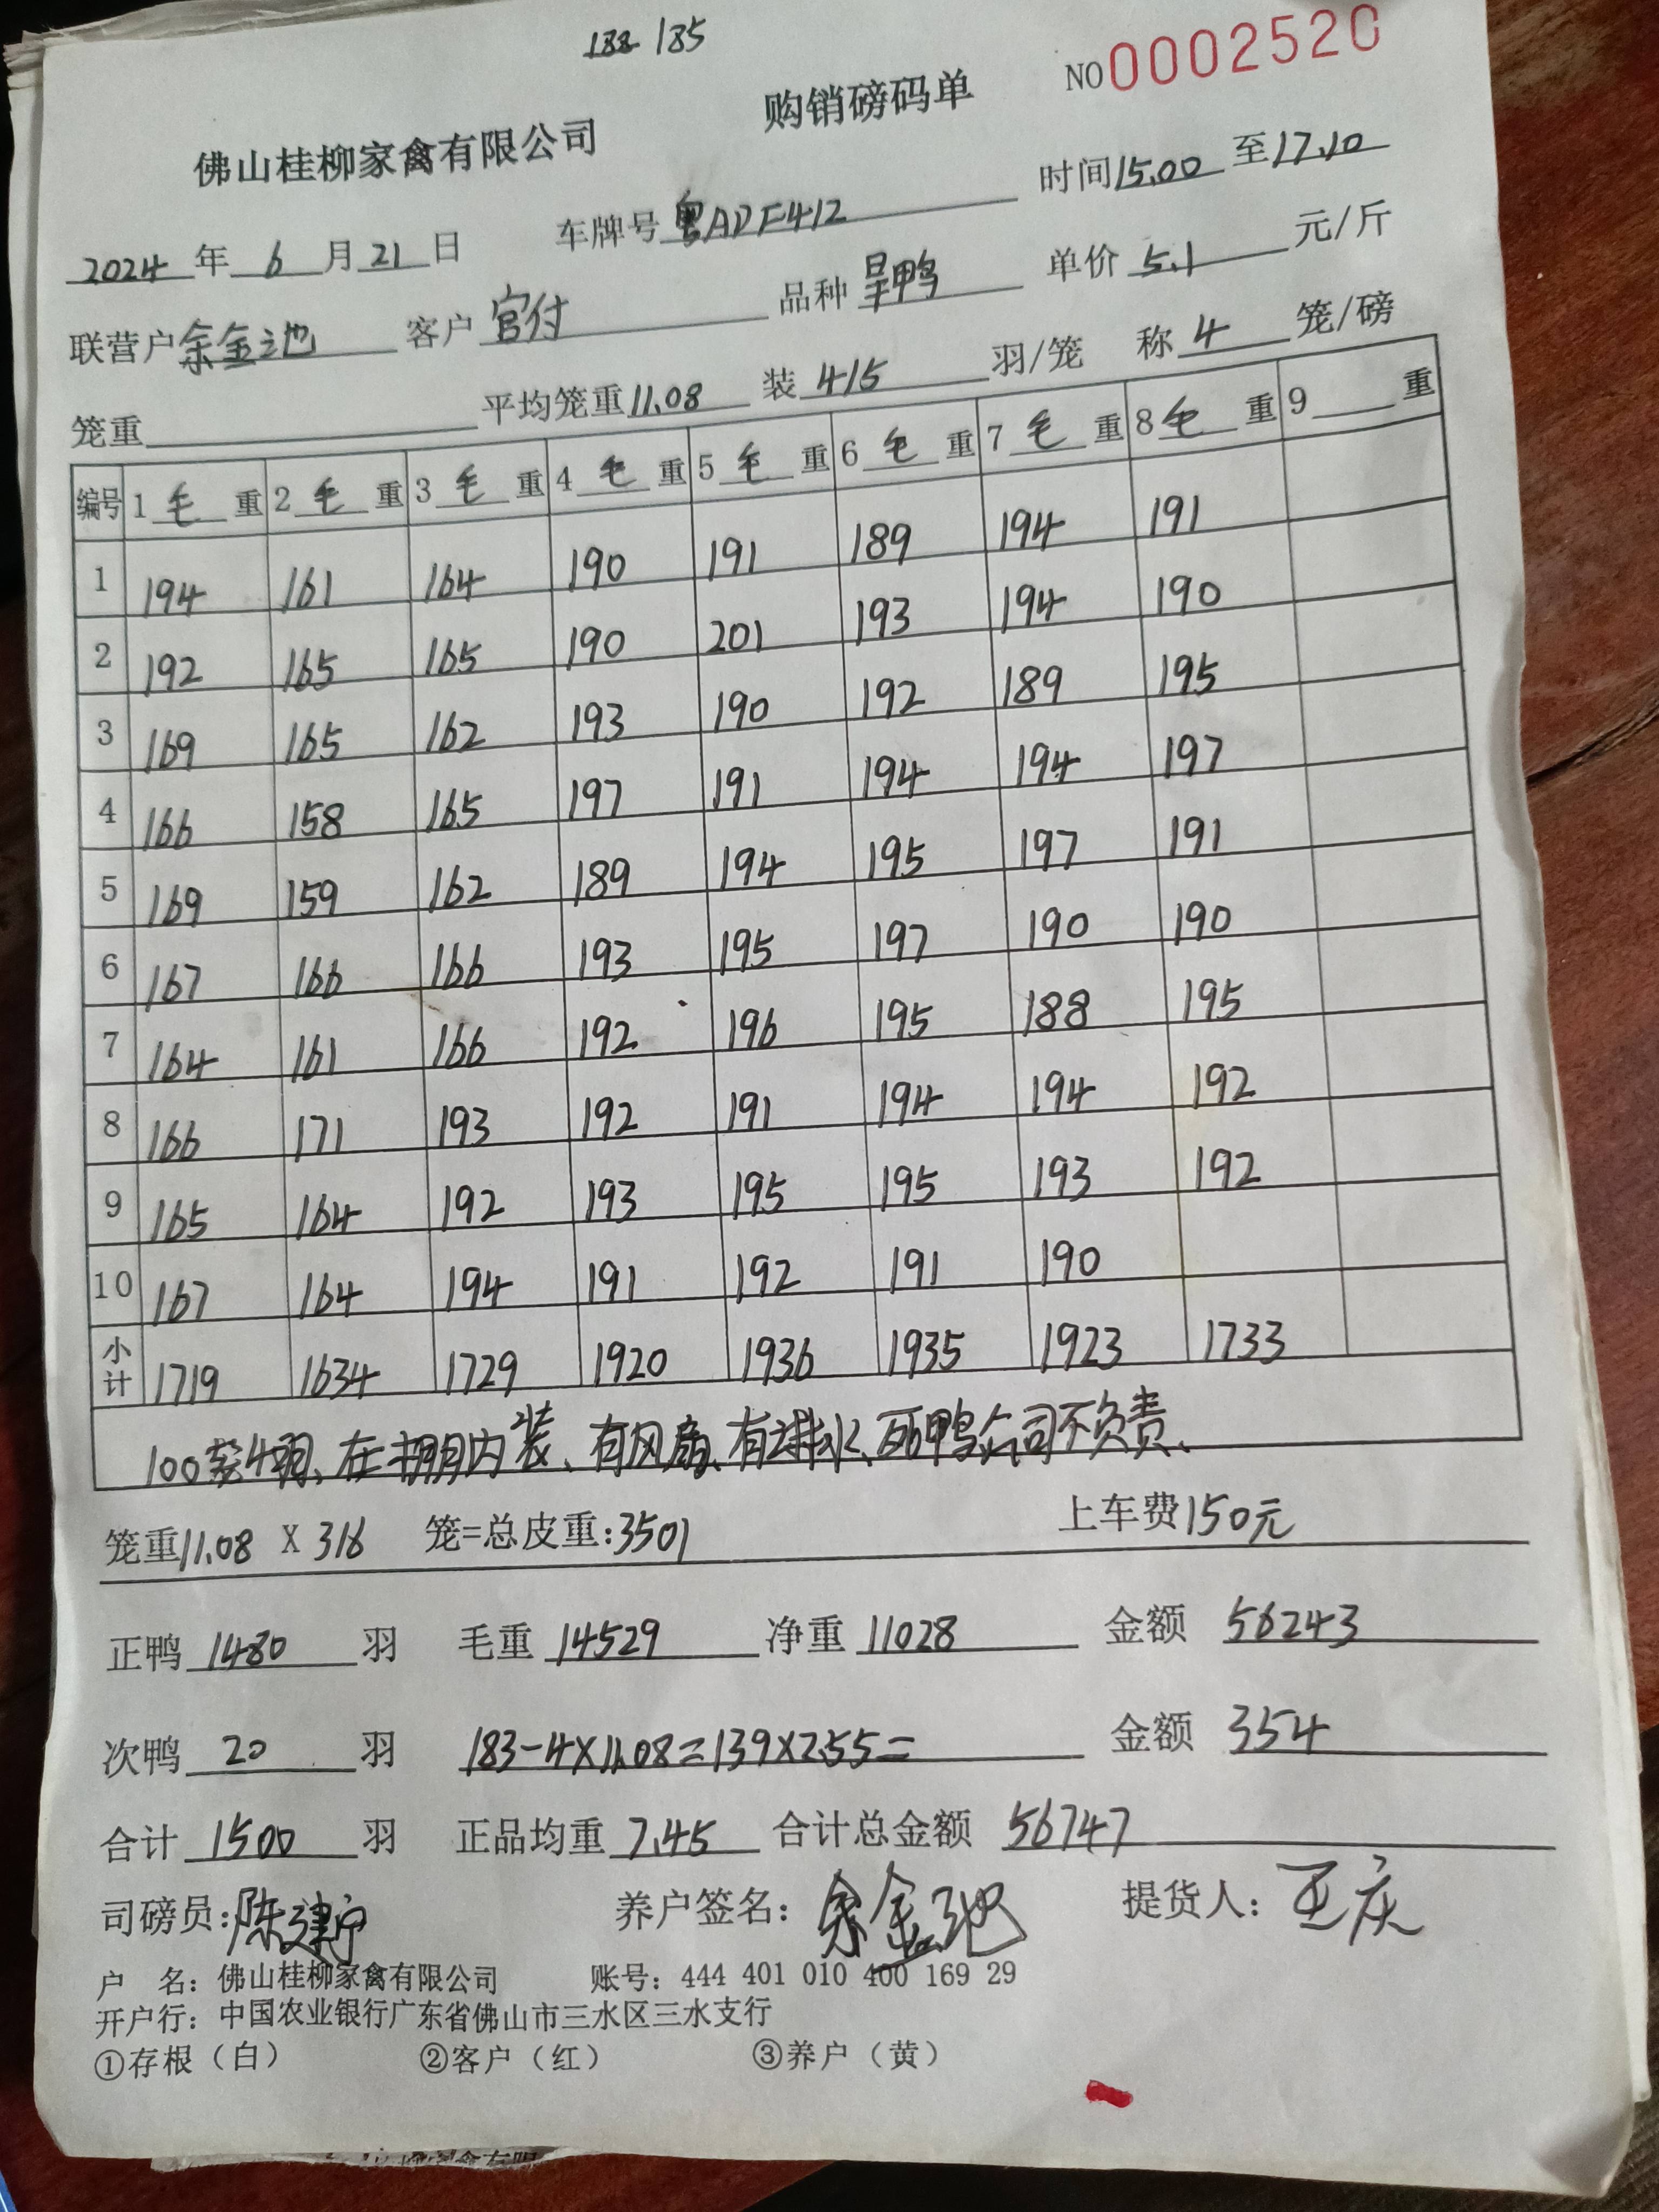 188 185
购销磅码单 NO 0002520
佛山桂柳家禽有限公司
时间 15.00 至 17.10
2024 年 6 月 21 日 车牌号 粤ADF412
单价 5.1 元/斤
联营户 余金池 客户 官付 品种 呈鸭
笼重 平均笼重 11.08 装 4/5 羽/笼 称 4 笼/磅
编号 1 毛 重 2 毛 重 3 毛 重 4 毛 重 5 毛 重 6 毛 重 7 毛 重 8 毛 重 9 重
1 194 161 164 190 191 189 194 191
2 192 165 165 190 201 193 194 190
3 169 165 162 193 190 192 189 195
4 166 158 165 197 191 194 194 197
5 169 159 162 189 194 195 197 191
6 167 166 166 193 195 197 190 190
7 164 161 166 192 196 195 188 195
8 166 171 193 192 191 194 194 192
9 165 164 192 193 195 195 193 192
10 167 164 194 191 192 191 190
小计 1719 1634 1729 1920 1936 1935 1923 1733
100装4羽、在棚内装、有风扇、有排水、死鸭公司不负责、
笼重 11.08 X 316 笼=总皮重: 3501 上车费 150元
正鸭 1480 羽 毛重 14529 净重 11028 金额 56243
次鸭 20 羽 183-4×11.08=139×2.55= 金额 354
合计 1500 羽 正品均重 7.45 合计总金额 56747
司磅员: 陈建宁 养户签名: 余金池 提货人: 王庆
户 名: 佛山桂柳家禽有限公司 账号: 444 401 010 400 169 29
开户行: 中国农业银行广东省佛山市三水区三水支行
①存根（白） ②客户（红） ③养户（黄）